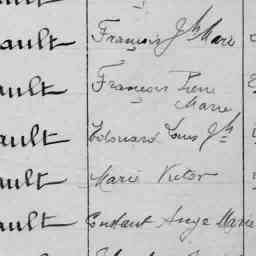 ault François Jh Marie
ault François Pierre
Marie
ault Edouard Louis Jh
ault Marie Victor
ault Constant Ange Marie